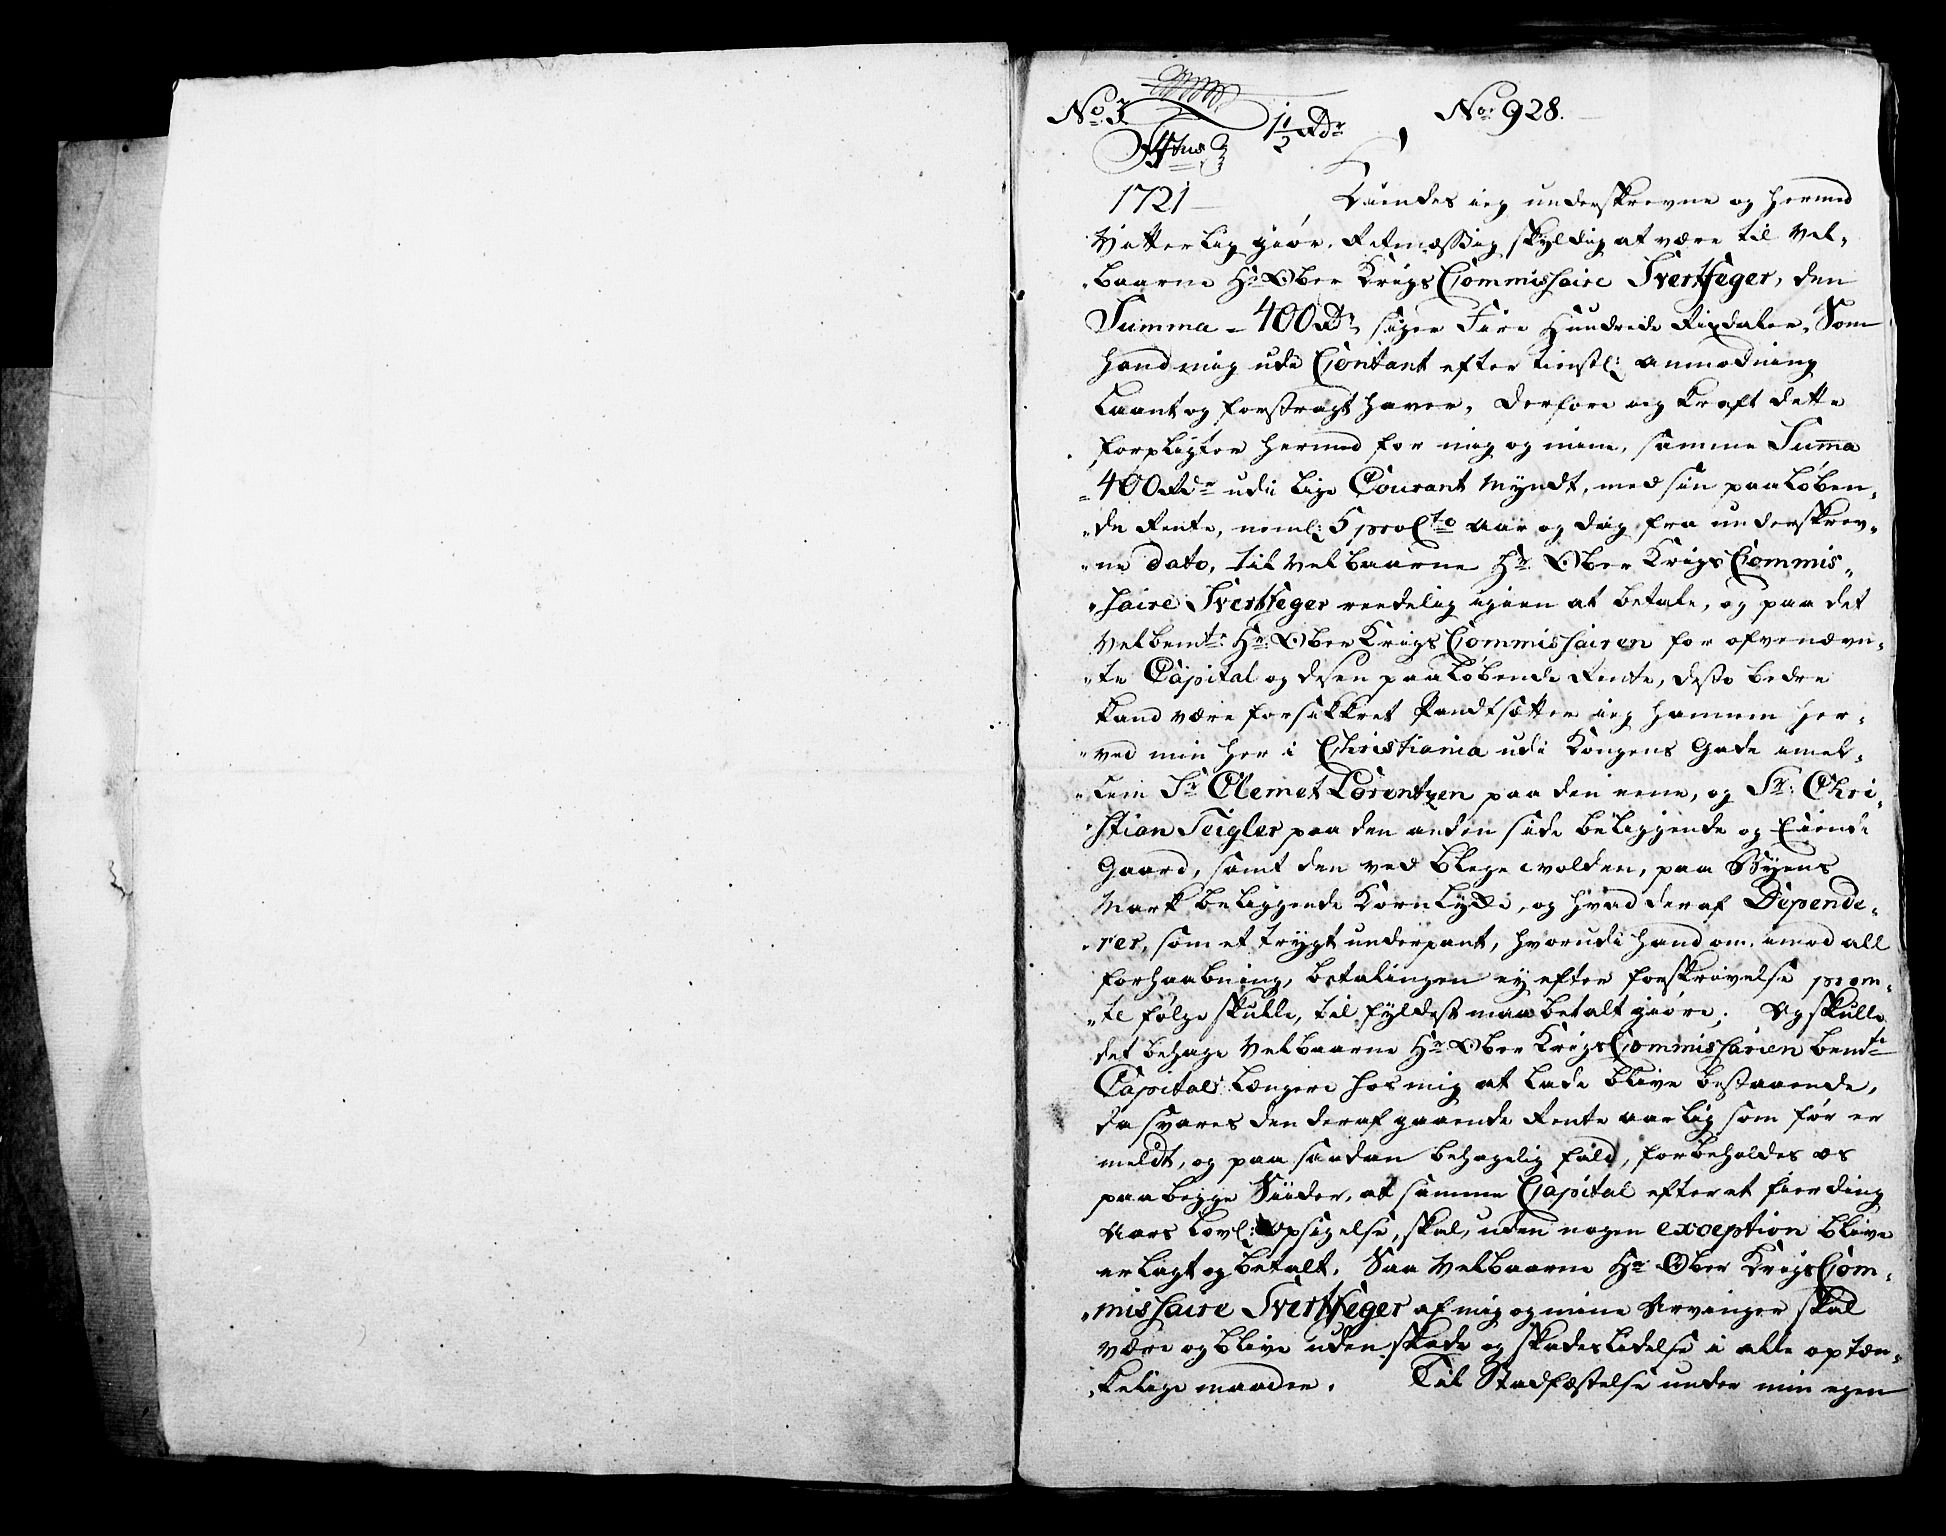 No: 3 1½ Rdr No: 928.
1721
Kiendes ieg underskrevne og hermed
Vitterlig giør, Retmæssig skyldig at være til Vel-
baarne Hr: Ober Krigs Commissaire Svertfeger, den
Summa - 400 Rdr, siger Fire Hundrede Rixdaler, Som
hand mig udi Contant efter tienstl: anmodning
Laant og forstragt haver, derfore ieg Kraft dette
forpligter hermed for mig og mine, samme Suma
400 Rdr udi lige Courant Myndt, med sin paaløben-
de Rente, neml: 5 pro Cto Aar og dag fra underskrev-
ne dato, til Velbaarne Hr Ober Krigs Commis-
saire Svertfeger reedelig igien at betale, og paa det
Velbemte: Hr: Ober Krigs Commissairen for ofvenævn-
te Capital og desen paaløbende Rente, desto bedre
kand være forsikkret Pandtsætter ieg hannem her-
ved min her i Christiania udi Kongens Gade imel-
lem Sr Clemet Lorentzen paa den eene, og Sr: Chri-
stian Teigler paa den anden side beliggende og Eiende
Gaard, samt den ved Blege volden, paa Byens
Mark beliggende Kornløkke, og hvad deraf Depende-
rer, som et trygt underpant, hvorudi hand om, imod all
forhaabning, betalingen ey efter forskrivelse prom-
te følge skulle, til fyldest maa betalt giøre. Og skulle
det behage Velbaarne Hr Ober Krigs Commissarien bemte
Capital længere hos mig at lade blive bestaaende,
da svares den deraf gaaende Rente aarlig som før er
meldt, og paa saadan behagelig fald, forbeholdes os
paa begge Siider, at samme Capital efter et fierding
Aars Lovl: Opsigelse, skal, uden nogen exception blive
erlagt og betalt. Saa Velbaarne Hr Ober Krigs Com-
missaire Svertfeger af mig og mine Arvinger skal
være og blive uden skade og skadeslidelse i alle optæn-
kelige maader. Til Stadfæstelse under min egen